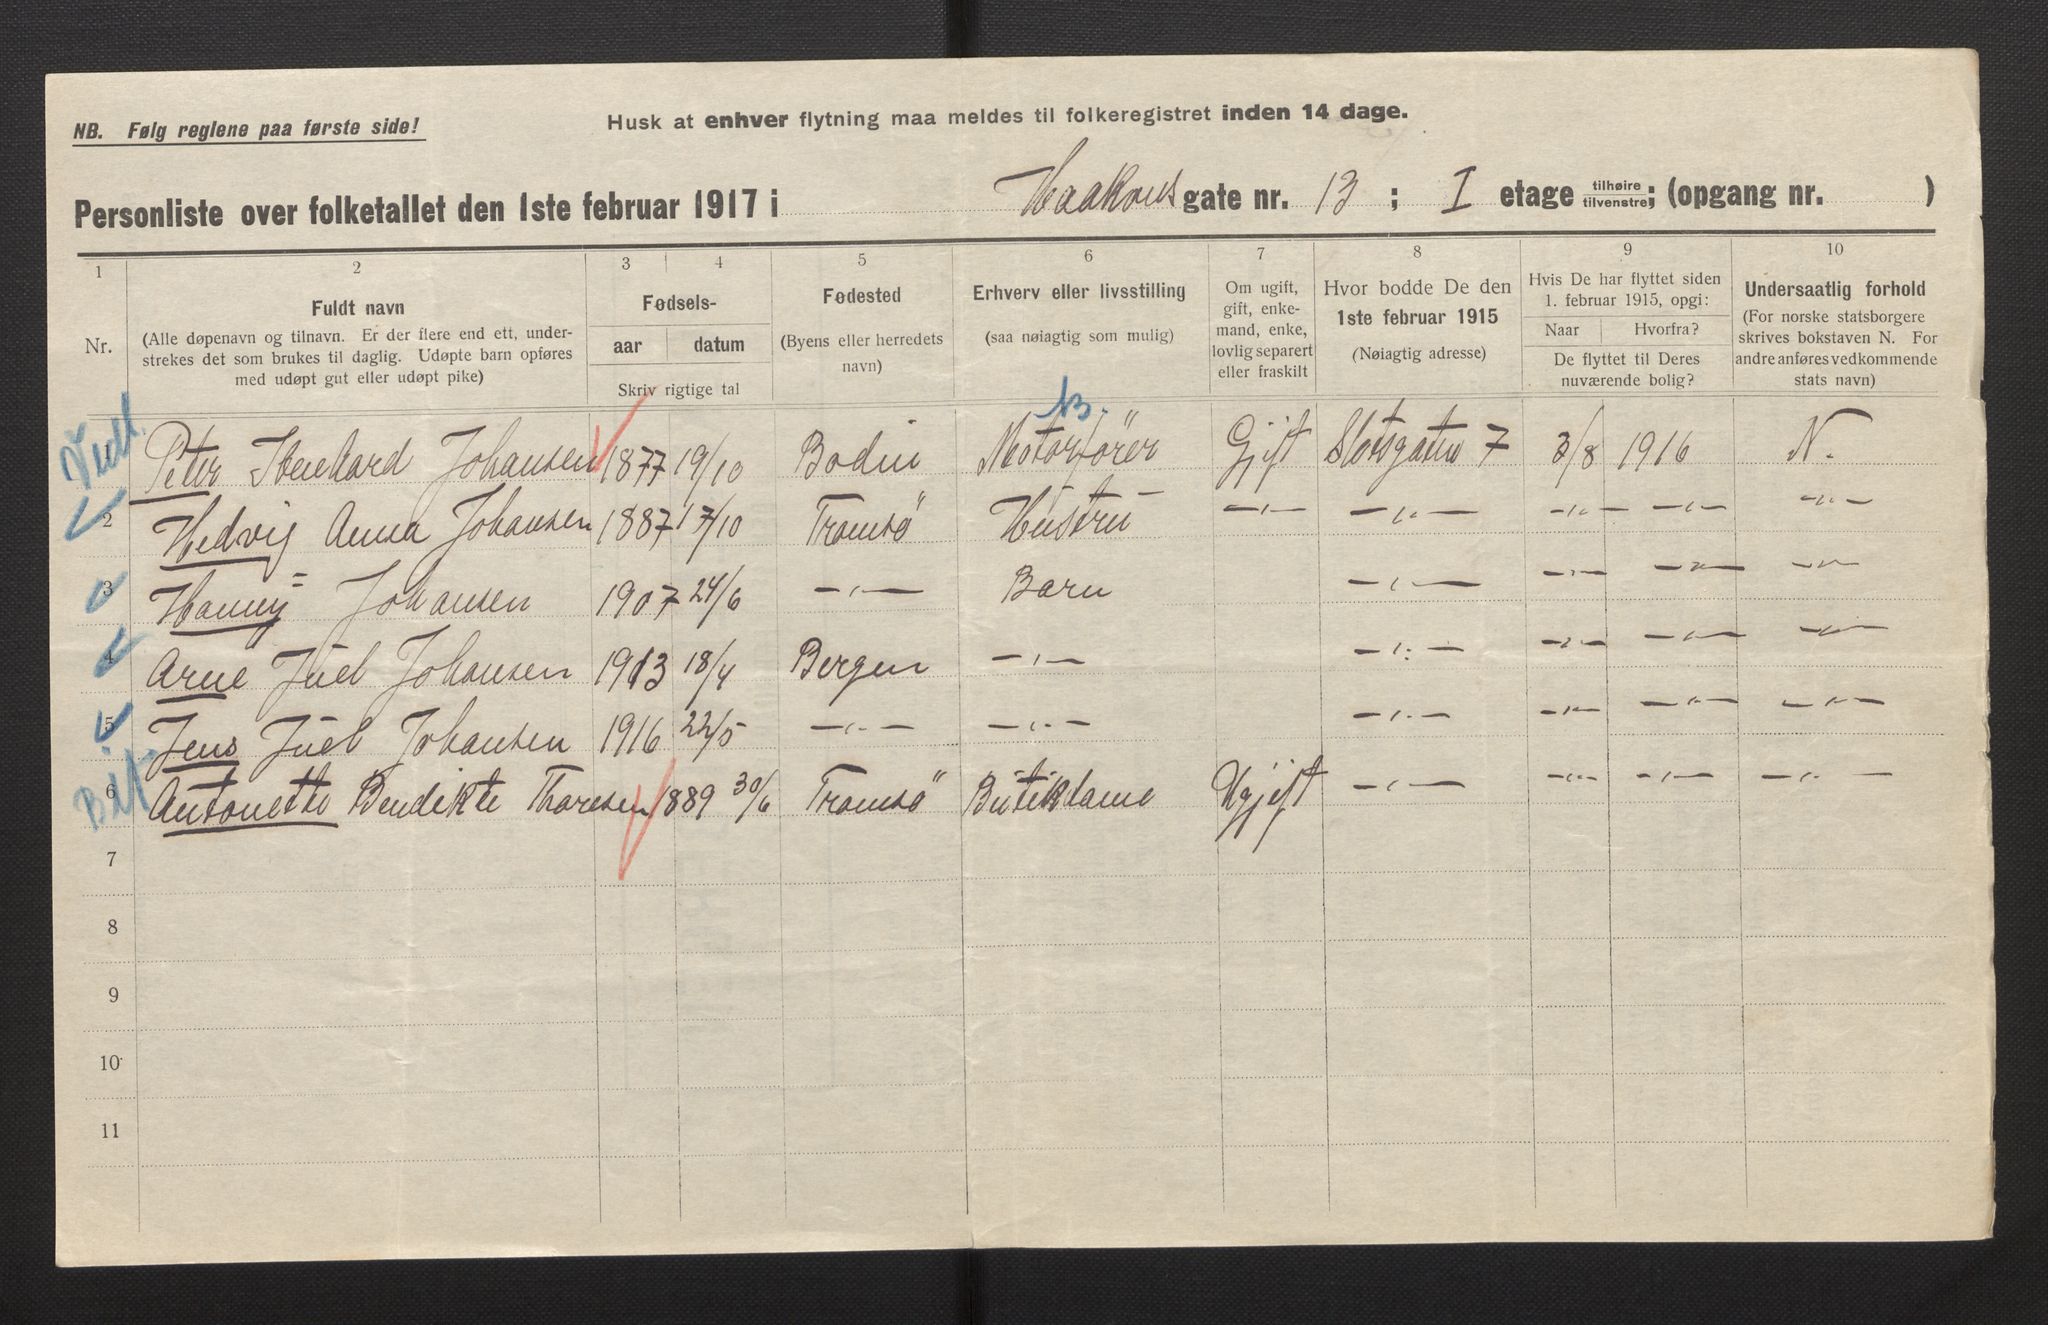 NB. Følg reglene paa første side!
Husk at enhver flytning maa meldes til folkeregistret inden 14 dage.
Personliste over folketallet den 1ste februar 1917 i Haakons gate nr. 13 ; I etage tilhøire tilvenstre; (opgang nr. )
1 2 3 4 5 6 7 8 9 10
Nr.
Fuldt navn
(Alle døpenavn og tilnavn. Er der flere end ett, under-
strekes det som brukes til daglig. Udøpte barn opføres
med udøpt gut eller udøpt pike)
Fødsels-
aar datum
Skriv rigtige tal
Fødested
(Byens eller herredets
navn)
Erhverv eller livsstilling
(saa nøiagtig som mulig)
Om ugift,
gift, enke-
mand, enke,
lovlig separert
eller fraskilt
Hvor bodde De den
1ste februar 1915
(Nøiagtig adresse)
Hvis De har flyttet siden
1. februar 1915, opgi:
Naar Hvorfra?
De flyttet til Deres
nuværende bolig?
Undersaatlig forhold
(For norske statsborgere
skrives bokstaven N. For
andre anføres vedkommende
stats navn)
1 Peter Johansen 1877 19/10 Bodin Motorfører Gjift Slotsgaten 7 3/8 1916 N.
2 Hedvig Anna Johansen 1887 17/10 Tromsö Hustru —"— —"— —"— —"— —"—
3 Hanny Johansen 1907 24/6 —"— Barn —"— —"— —"— —"—
4 Arne Juel Johansen 1913 18/4 Bergen —"— —"— —"— —"— —"—
5 Jens Juel Johansen 1916 22/5 —"— —"— —"— —"— —"— —"—
6 Antonette Bendikte Thoresen 1889 30/6 Tromsö Butikdame Ugjift —"— —"— —"— —"—
7
8
9
10
11